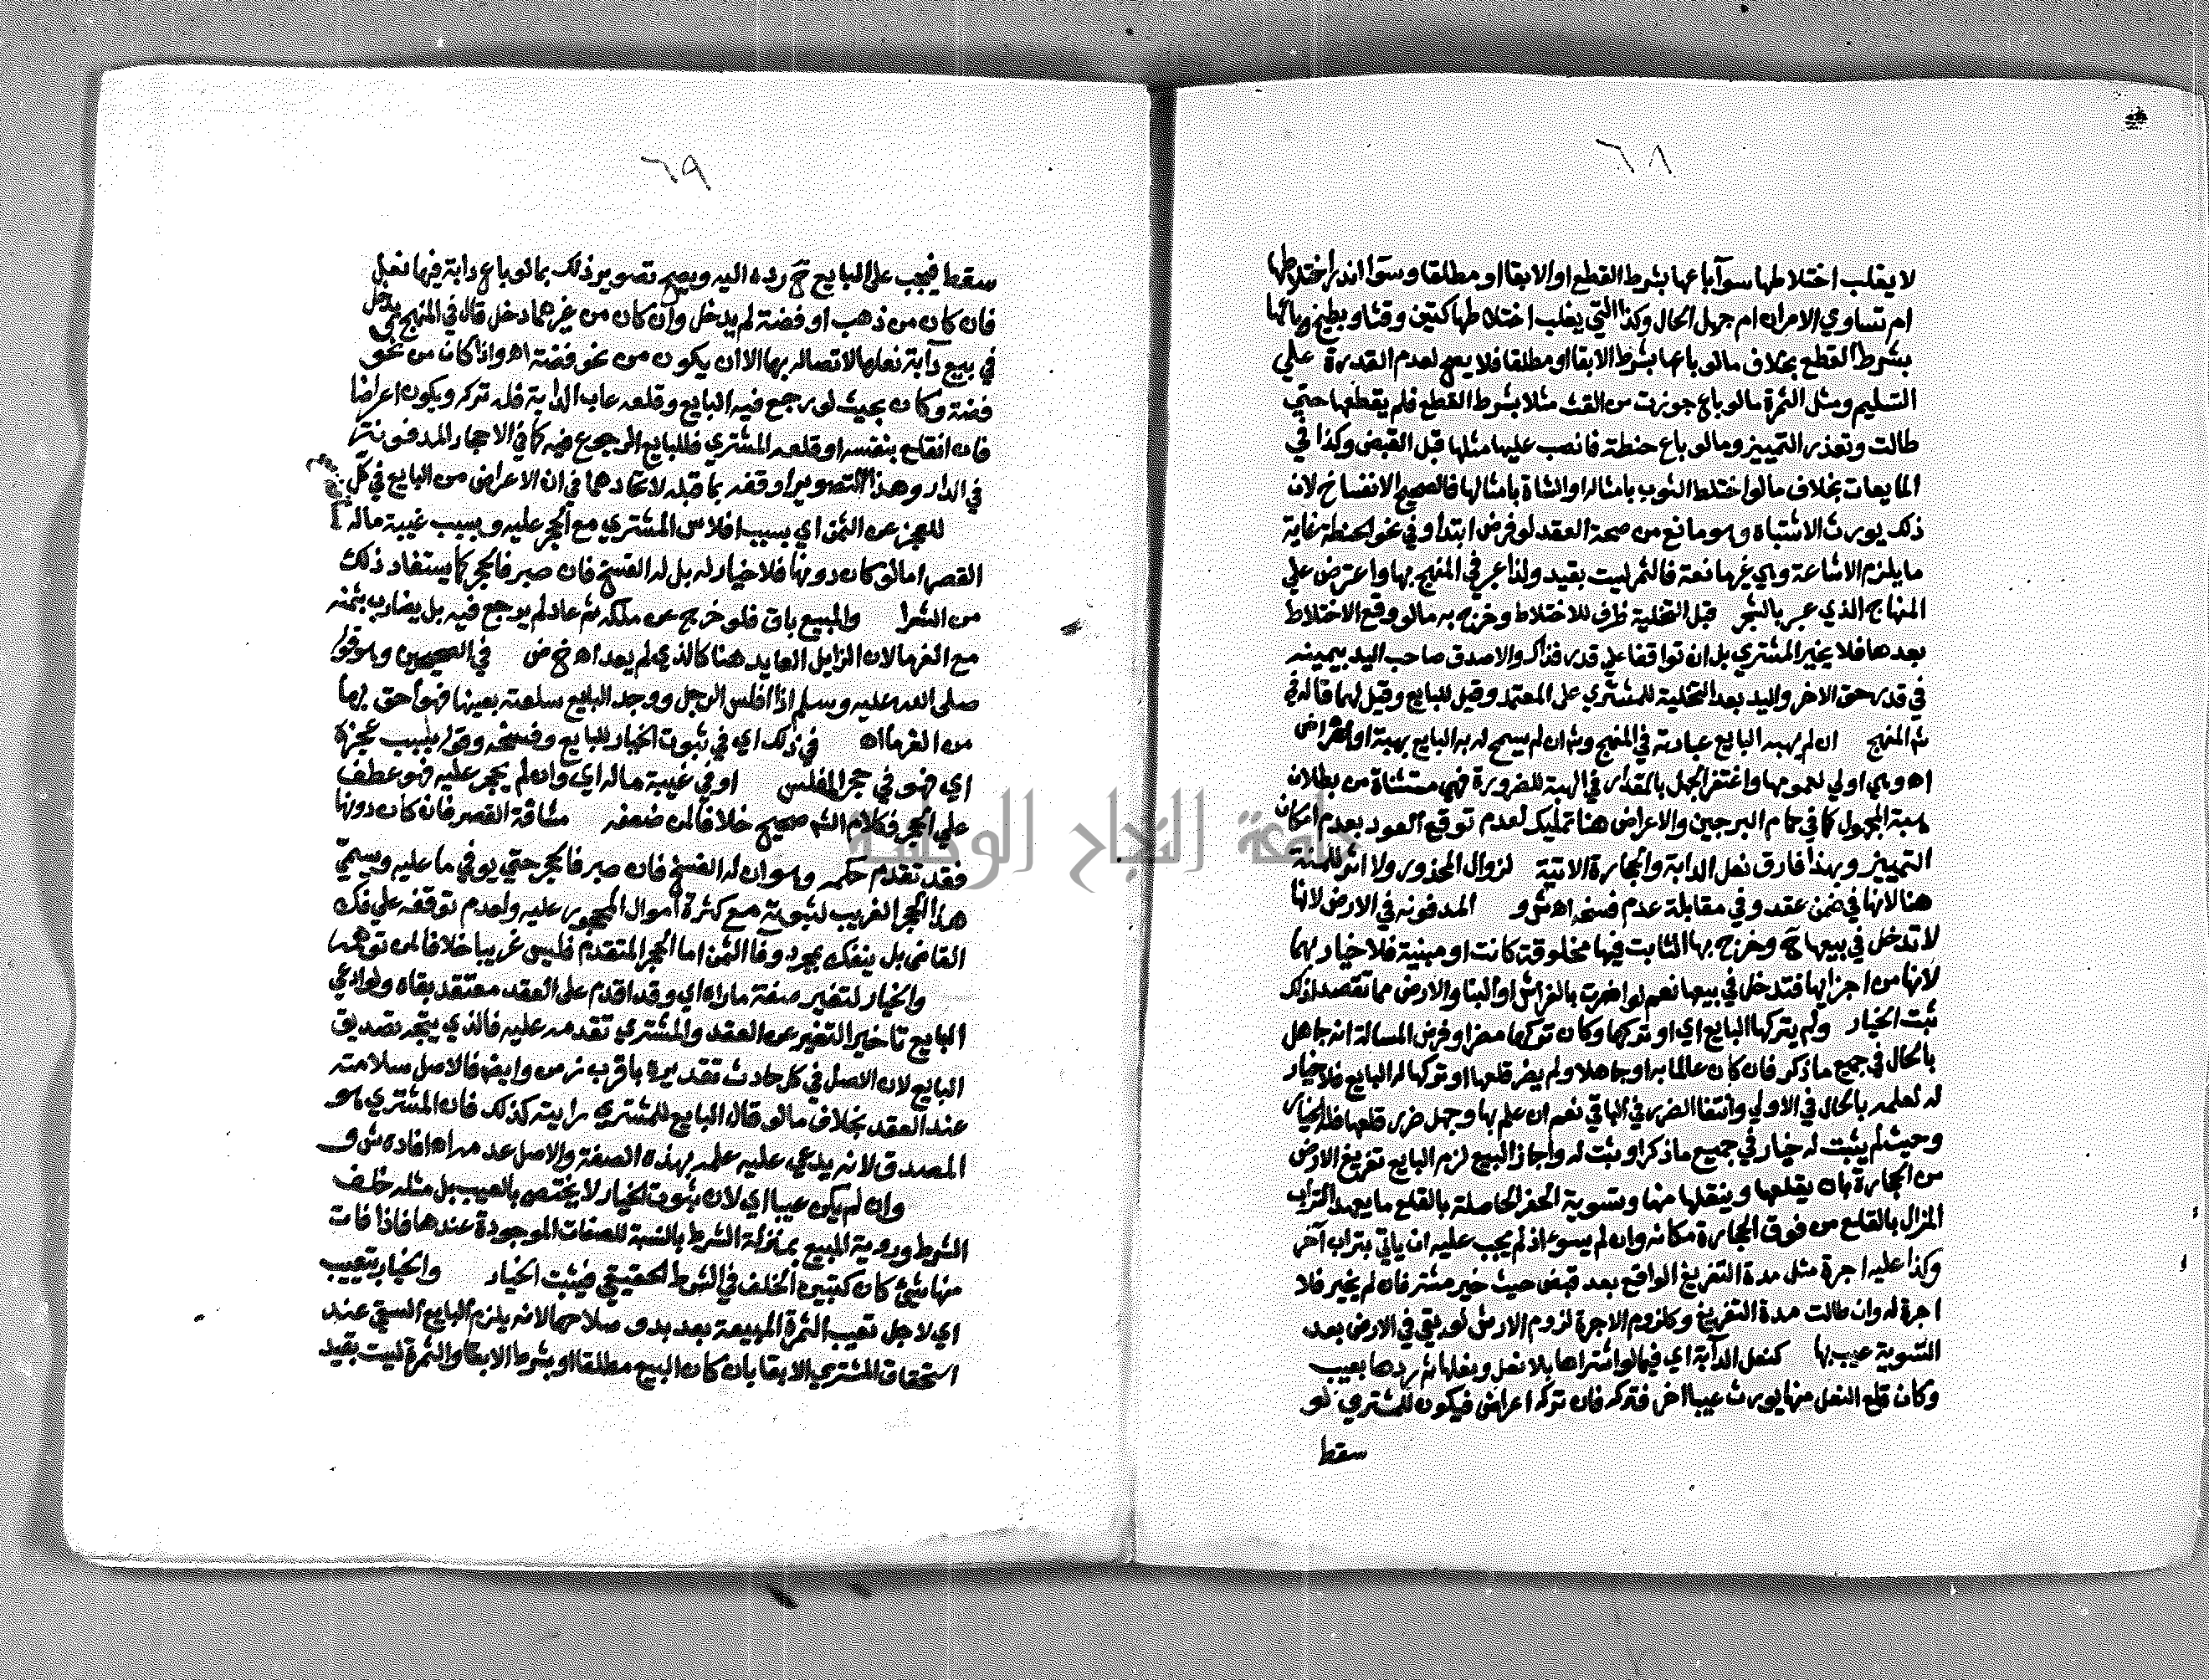 ٦٨
لا يغلب اختلاطها سوآ باعها بشرط القطع او الابقا او مطلقا وسوآ اندر اختلاطها
ام تساوي الامران ام جهل الحال وكذا التي يغلب اختلاطها كتين وقثا وبطيخ وباعها
بشرط القطع بخلاف مالو باعها بشرط الابقا او مطلقا فلا يصح لعدم القدرة علي
التسليم ومثل الثمرة مالو باع جوزت من القت مثلا بشرط القطع فلم يقطعها حتي
طالت وتعذر التمييز ومالو باع حنطة فانصب عليها مثلها قبل القبض وكذا في
المايعات بخلاف مالو اختلط الثوب بامثاله او الشاة بامثالها فالصحيح الانفساخ لان
ذلك يورث الاشتباه وهو مانع من صحة العقد لو فرض ابتدا وفي نحو الحنطة غاية
ما يلزم الاشاعة وهي غير مانعة فالثمر ليست بقيد ولذا عبر في المنهج بها واعترض علي
المنهاج الذي عبر بالثمر قبل التخلية ظرف للاختلاط وخرج به مالو وقع الاختلاط
بعدها فلا يخير المشتري بل ان توافقا علي قدر فذاك والا صدق صاحب اليد بيمينه
في قدر حق الاخر واليد بعد التخلية للمشتري علي المعتمد وقيل للبايع وقيل لهما قاله في
شه المنهج ان لم يهبه البايع عبارته في المنهج وشه ان لم يسمح له به البايع بهبة او اعراض
اه وهي اولي لعمومها واغتفر الجهل بالمقدار في الهبة للضرورة فهي مستثناة من بطلان
هبة المجهول كما في حمام البرجين والاعراض هنا تمليك لعدم توقع العود بعدم امكان
التمييز وبهذا فارق نعل الدابة والحجارة الاتية لزوال المحذور ولا اثر للمنة
هنا لانها في ضمن عقد وفي مقابلة عدم فسخه اه ش و المدفونه في الارض لانها
لا تدخل في بيعها ح وخرج بها الثابت فيها مخلوقة كانت او مبنية فلا خيار بهما
لانها من اجزايها فتدخل في بيعها نعم لو اضرت بالغراس او البنا والارض مما تقصد لذلك
ثبت الخيار ولم يتركها البايع اي او تركها وكان تركها مضرا وفرض المسالة انه جاهل
بالحال في جميع ما ذكر فان كان عالما به او جاهلا ولم يضر قلعها او تركها له البايع فلا خيار
له لعلمه بالحال في الاولي وانتفا الضرر في الباقي نعم ان علم بها وجهل ضرر قلعها فله الخيار
وحيث لم يثبت له خيار في جميع ما ذكر او ثبت له واجاز البيع لزم البايع تفريغ الارض
من الحجارة بان يقلعها وينقلها منها وتسوية الحفر الحاصلة بالقلع ما يعهد التراب
المزال بالقلع من فوق الحجارة مكانه وان لم يسو اذ لم يجب عليه ان ياتي بتراب آخر
وكذا عليه اجرة مثل مدة التفريغ الواقع بعد قبض حيث خير مشتر فان لم يخير فلا
اجرة له وان طالت مدة التفريغ وكلزوم الاجرة لزوم الارش لو بقي في الارض بعد
التسوية عيب بها كنعل الدآبة اي فيما لو اشتراها بلا نعل ونعلها ثم ردها بعيب
وكان قلع النعل منها يورث عيبا اخر فتركه فان تركه اعراض فيكون للمشتري لو
سقط
٦٩
سقط فيجب علي البايع ح رده اليه ويصح تصوير ذلك بمالو باع دابة فيها نعل
فان كان من ذهب او فضة لم يدخل وان كان من غيرهما دخل قال في المنهج يدخل
في بيع دآبة نعلها لاتصاله بها الا ان يكون من نحو فضة اه واذا كان من نحو
فضة وكان بحيث لو رجع فيه البايع وقلعه عاب الدابة فله تركه ويكون اعراضا
فان انقلع بنفسه او قلعه المشتري فللبايع الرجوع فيه كما في الاحجار المدفونة
في الدار وهذا التصوير اوقفه بما قبله لاتحادهما في ان الاعراض من البايع في كل
للعجز عن الثمن اي بسبب افلاس المشتري مع الحجر عليه وبسبب غيبة ماله
القصر اما لو كان دونها فلا خيار له بل له الفسخ فان صبر فالحجر كما يستفاد ذلك
من الشرا والمبيع باق فلو خرج عن ملكه ثم عاد لم يرجع فيه بل يضارب بثمنه
مع الغرما لان الزايل العايد هنا كالذي لم يعد اه خ ض في الصحيحين وهو قوله
صلي الله عليه وسلم اذا افلس الرجل ووجد البايع سلعته بعينها فهو احق بها
من الغرما اه في ذلك اي في ثبوت الخيار للبايع وفسخه وقوله بسبب عجزه
اي فهو في حجر المفلس او في غيبة ماله اي وان لم يحجر عليه فهو عطف
علي الحجر فكلام الشه صحيح خلافا لمن ضعفه مسافة القصر فان كان دونها
فقد تقدم حكمه وهو ان له الفسخ فان صبر فالحجر حتي يوفي ما عليه ويسمي
هذا الحجر الغريب لثبوته مع كثرة اموال المحجور عليه ولعدم توقفه علي فك
القاضي بل ينفك بمجرد وفا الثمن اما الحجر المتقدم فليس غريبا خلافا لمن توهمه
والخيار لتغير صفة ما راه اي وقد اقدم علي العقد معتقد بقاه ولو ادعي
البايع تاخير التغير عن العقد والمشتري تقدمه عليه فالذي يتجه تصديق
البايع لان الاصل في كل حادث تقديره باقرب زمن وايضا فالاصل سلامته
عند العقد بخلاف مالو قال البايع للمشتري رايته كذلك فان المشتري هو
المصدق لانه يدعي عليه علمه بهذه الصفة والاصل عدمه اه افاده ش و
وان لم يكن عيبا اي لان ثبوت الخيار لا يختص بالعيب بل مثله خلف
الشرط ورؤية المبيع بمنزلة الشرط بالنسبة للصفات الموجودة عندها فاذا فات
منها شئ كان كتبين الخلف في الشرط الحقيقي فيثبت الخيار والخيار بتعييب
اي لاجل تعيب الثمرة المبيعة بعد بدو صلاحها لانه يلزم البايع السقي عند
استحقاق المشتري الابقا بان كان البيع مطلقا او بشرط الابقا والثمرة ليست بقيد
جامعة النجاح الوطنية